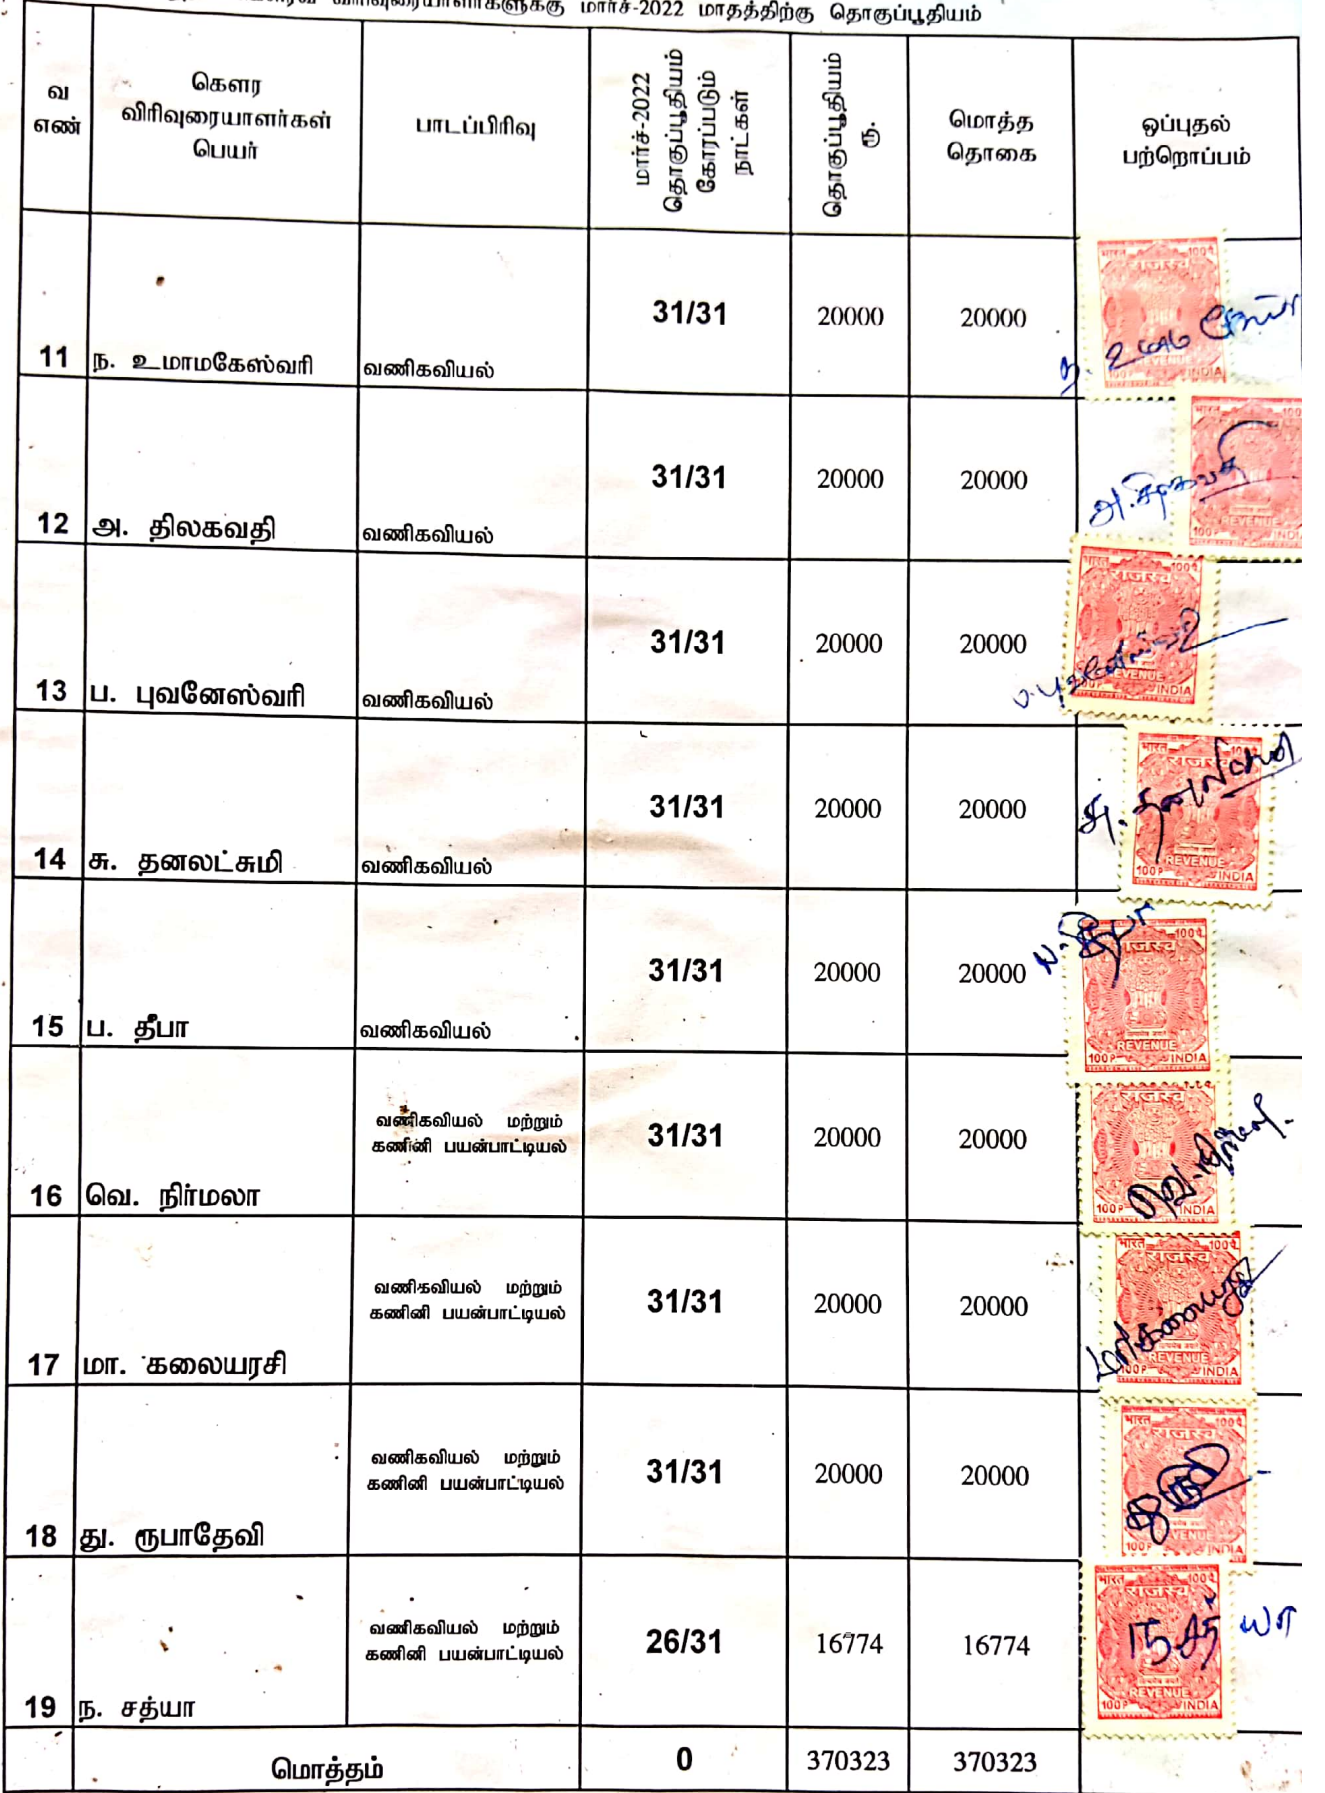 விரிவுரையாளர்களுக்கு மார்ச்-2022 மாதத்திற்கு தொகுப்பூதியம்
வ எண்
கௌர விரிவுரையாளர்கள் பெயர்
பாடப்பிரிவு
மார்ச்-2022 தொகுப்பூதியம் கோரப்படும் நாட்கள்
தொகுப்பூதியம் ரூ.
மொத்த தொகை
ஒப்புதல் பற்றொப்பம்
11 ந. உமாமகேஸ்வரி வணிகவியல் 31/31 20000 20000
12 அ. திலகவதி வணிகவியல் 31/31 20000 20000 அ.திலகவதி
13 ப. புவனேஸ்வரி வணிகவியல் 31/31 20000 20000 ப.புவனேஸ்வரி
14 சு. தனலட்சுமி வணிகவியல் 31/31 20000 20000 சு. தனலட்சுமி
15 ப. தீபா வணிகவியல் 31/31 20000 20000 ப. தீபா
16 வெ. நிர்மலா வணிகவியல் மற்றும்
கணினி பயன்பாட்டியல் 31/31 20000 20000 வெ.நிர்மலா
17 மா. கலையரசி வணிகவியல் மற்றும்
கணினி பயன்பாட்டியல் 31/31 20000 20000 மா.கலையரசி
18 து. ரூபாதேவி வணிகவியல் மற்றும்
கணினி பயன்பாட்டியல் 31/31 20000 20000
19 ந. சத்யா வணிகவியல் மற்றும்
கணினி பயன்பாட்டியல் 26/31 16774 16774 ந.சத்யா
மொத்தம் 0 370323 370323